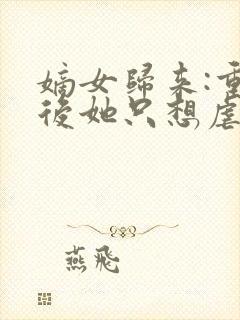 嫡女歸來:重
後她只想虐
燕飛